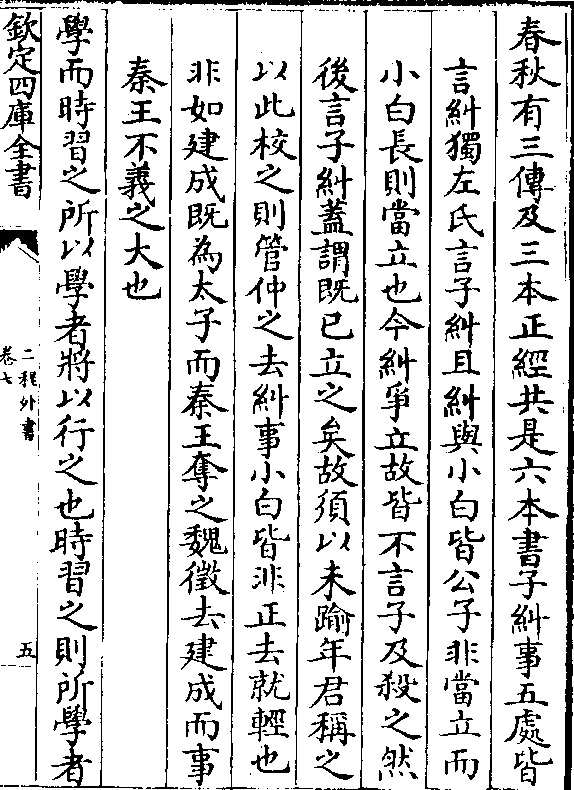 春秋有三傳及三本正經共是六本書子糾事五處皆
言糾獨左氏言子糾且糾與小白皆公子非當立而
小白長則當立也今糾爭立故皆不言子及殺之然
後言子糾蓋謂既已立之矣故須以未踰年君稱之
以此校之則管仲之去糾事小白皆非正去就輕也
非如建成既為太子而秦王奪之魏徵去建成而事
秦王不義之大也
學而時習之所以學者將以行之也時習之則所學者
欽定四庫全書
二程外書
卷七
五